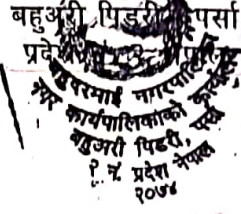 बहुअरी पिडरी पर्सा
बहुदरमाई नगरपालिका
नगर कार्यपालिकाको कार्यालय
बहुअरी पिडरी, पर्सा
२ नं. प्रदेश नेपाल
२०७४